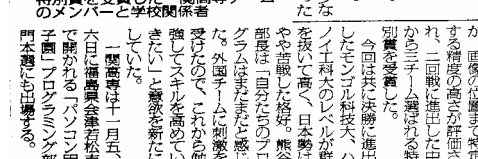 な
た
特別賞を受賞した一関高専チー
のメンバーと学校関係者
が、画像の位置まで特定
する精度の高さが評価さ
れ、二回戦に進出した中
から三チーム選ばれる特
別賞を受賞した。
今回は共に決勝に進出
したモンゴル科技大、ハ
ノイ工科大のレベルが群
を抜いて高く、日本勢は
やや苦戦した格好。熊谷
部長は「自分たちのプロ
グラムはまだまだと感じ
た。外国チームに刺激を
受けたので、これから勉
強してスキルを高めてい
きたい」と意欲を新たに
していた。
一関高専は十一月五、
六日に福島県会津若松市
で開かれる「パソコン甲
子園」プログラミング部
門本選にも出場する。